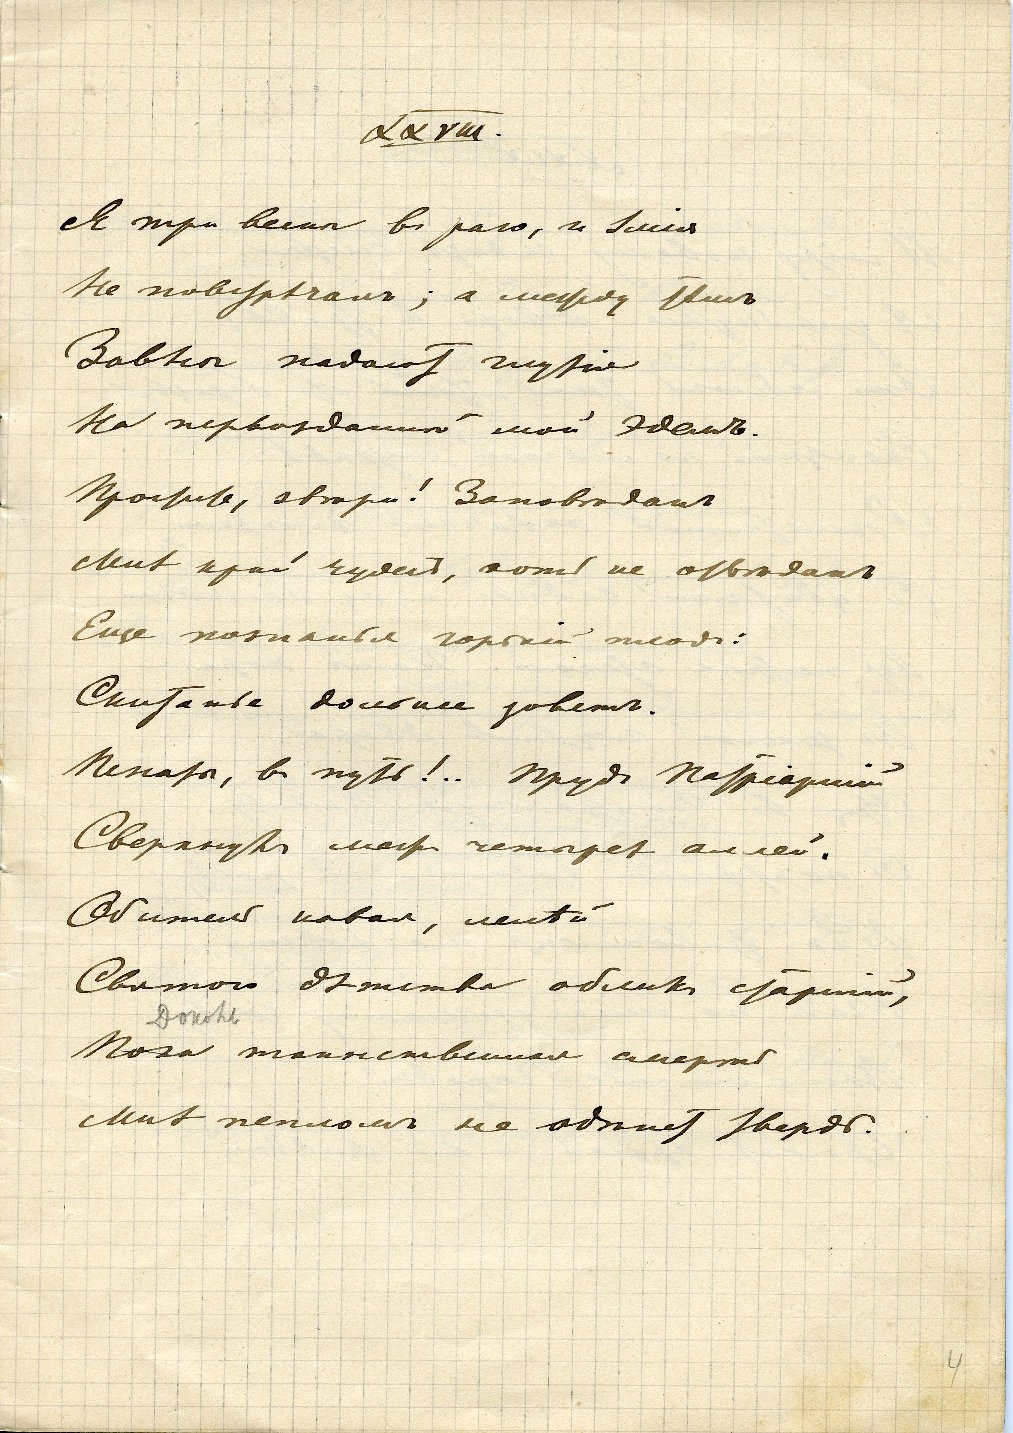 XXVIII.
Я три весны въ раю, и змія
Не повстрѣчалъ; а между тѣмъ
Завѣсы падаютъ глухія
На первозданный мой Эдемъ.
Простите, звѣри! Заповѣданъ
Мнѣ край чудесъ, хоть не отвѣданъ
Еще познанья горькій плодъ:
Скитанье дольнее зоветъ.
Пенаты, въ путь!.. Прудъ Патріаршій
Сверкнулъ межъ четырехъ аллей.
Обитель новая, лелѣй
Святого дѣтства обликъ старшій,
Доколь
Пока таинственная смерть
Мнѣ пепломъ не одѣнетъ твердь.
4